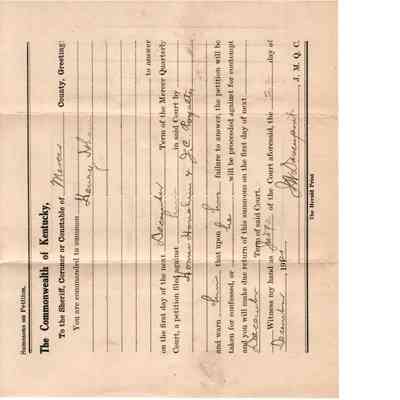 Summons on Petition.
The Commonwealth of Kentucky,
To the Sheriff, Coroner or Constable of Mercer County, Greeting:
You are commanded to summon Henry
to answer
on the first day of the next December Term of the Mercer Quarterly
Court, a petition filed against him in said Court by
&
and warn him that upon his failure to answer, the petition will be
taken for confessed, or he will be proceeded against for contempt
and you will make due return of this summons on the first day of next
December Term of said Court.
Witness my hand as of the Court aforesaid, the day of
December 191
J. M. Q. C.
The Herald Print